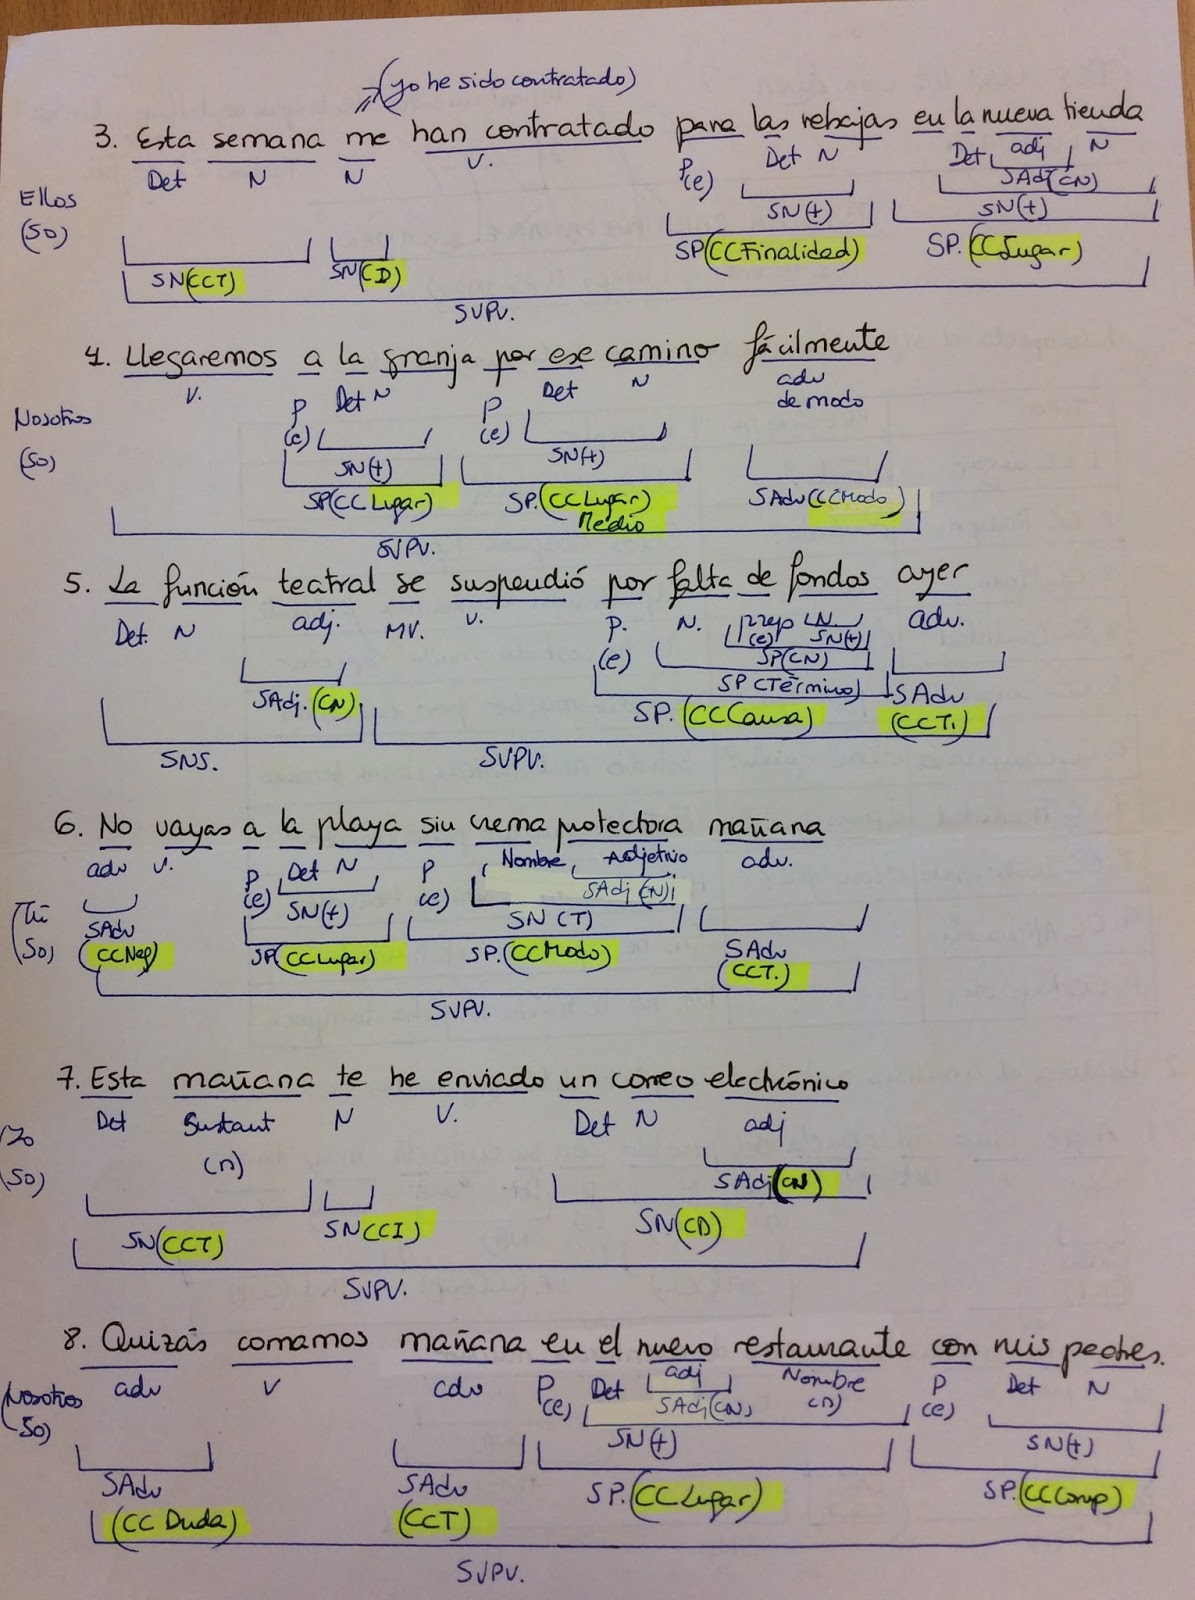 (yo he sido contratado)
3. Esta semana me han contratado para las rebajas en la nueva tienda
Det N N V. P (e) Det N Det adj N
SAdj(CN)
Ellos (SO)
SN(t) SN(t)
SN(CCT) SN(CD) SP(CCFinalidad) SP.(CCLugar)
SVPV.
4. Llegaremos a la granja por ese camino fácilmente
V. P (e) Det N P (e) Det N adv de modo
Nosotros (SO)
SN(t) SN(t)
SP(CCLugar) SP.(CCLugar) SAdv(CCModo)
Medio
SVPV.
5. La función teatral se suspendió por falta de fondos ayer
Det. N adj. MV. V. P. (e) N. prep (e) N. adv.
SN(t)
SP(CN)
SP(Término)
SAdj.(CN) SP.(CCCausa) SAdv (CCT.)
SNS. SVPV.
6. No vayas a la playa sin crema protectora mañana
adv V. P (e) Det N P (e) Nombre Adjetivo adv.
SAdj(CN)
(Tú SO)
SN(t) SN(T)
SAdv (CCNeg) SP(CCLugar) SP.(CCModo) SAdv (CCT.)
SVPV.
7. Esta mañana te he enviado un correo electrónico
Det Sustant (n) N V. Det N adj
Yo (SO)
SAdj(CN)
SN(CCT) SN(CCI) SN(CD)
SVPV.
8. Quizás comamos mañana en el nuevo restaurante con mis padres.
adv V adv P (e) Det adj Nombre (n) P (e) Det N
SAdj(CN)
(Nosotros SO)
SN(t) SN(t)
SAdv (CC Duda) SAdv (CCT) SP.(CCLugar) SP.(CCComp)
SVPV.